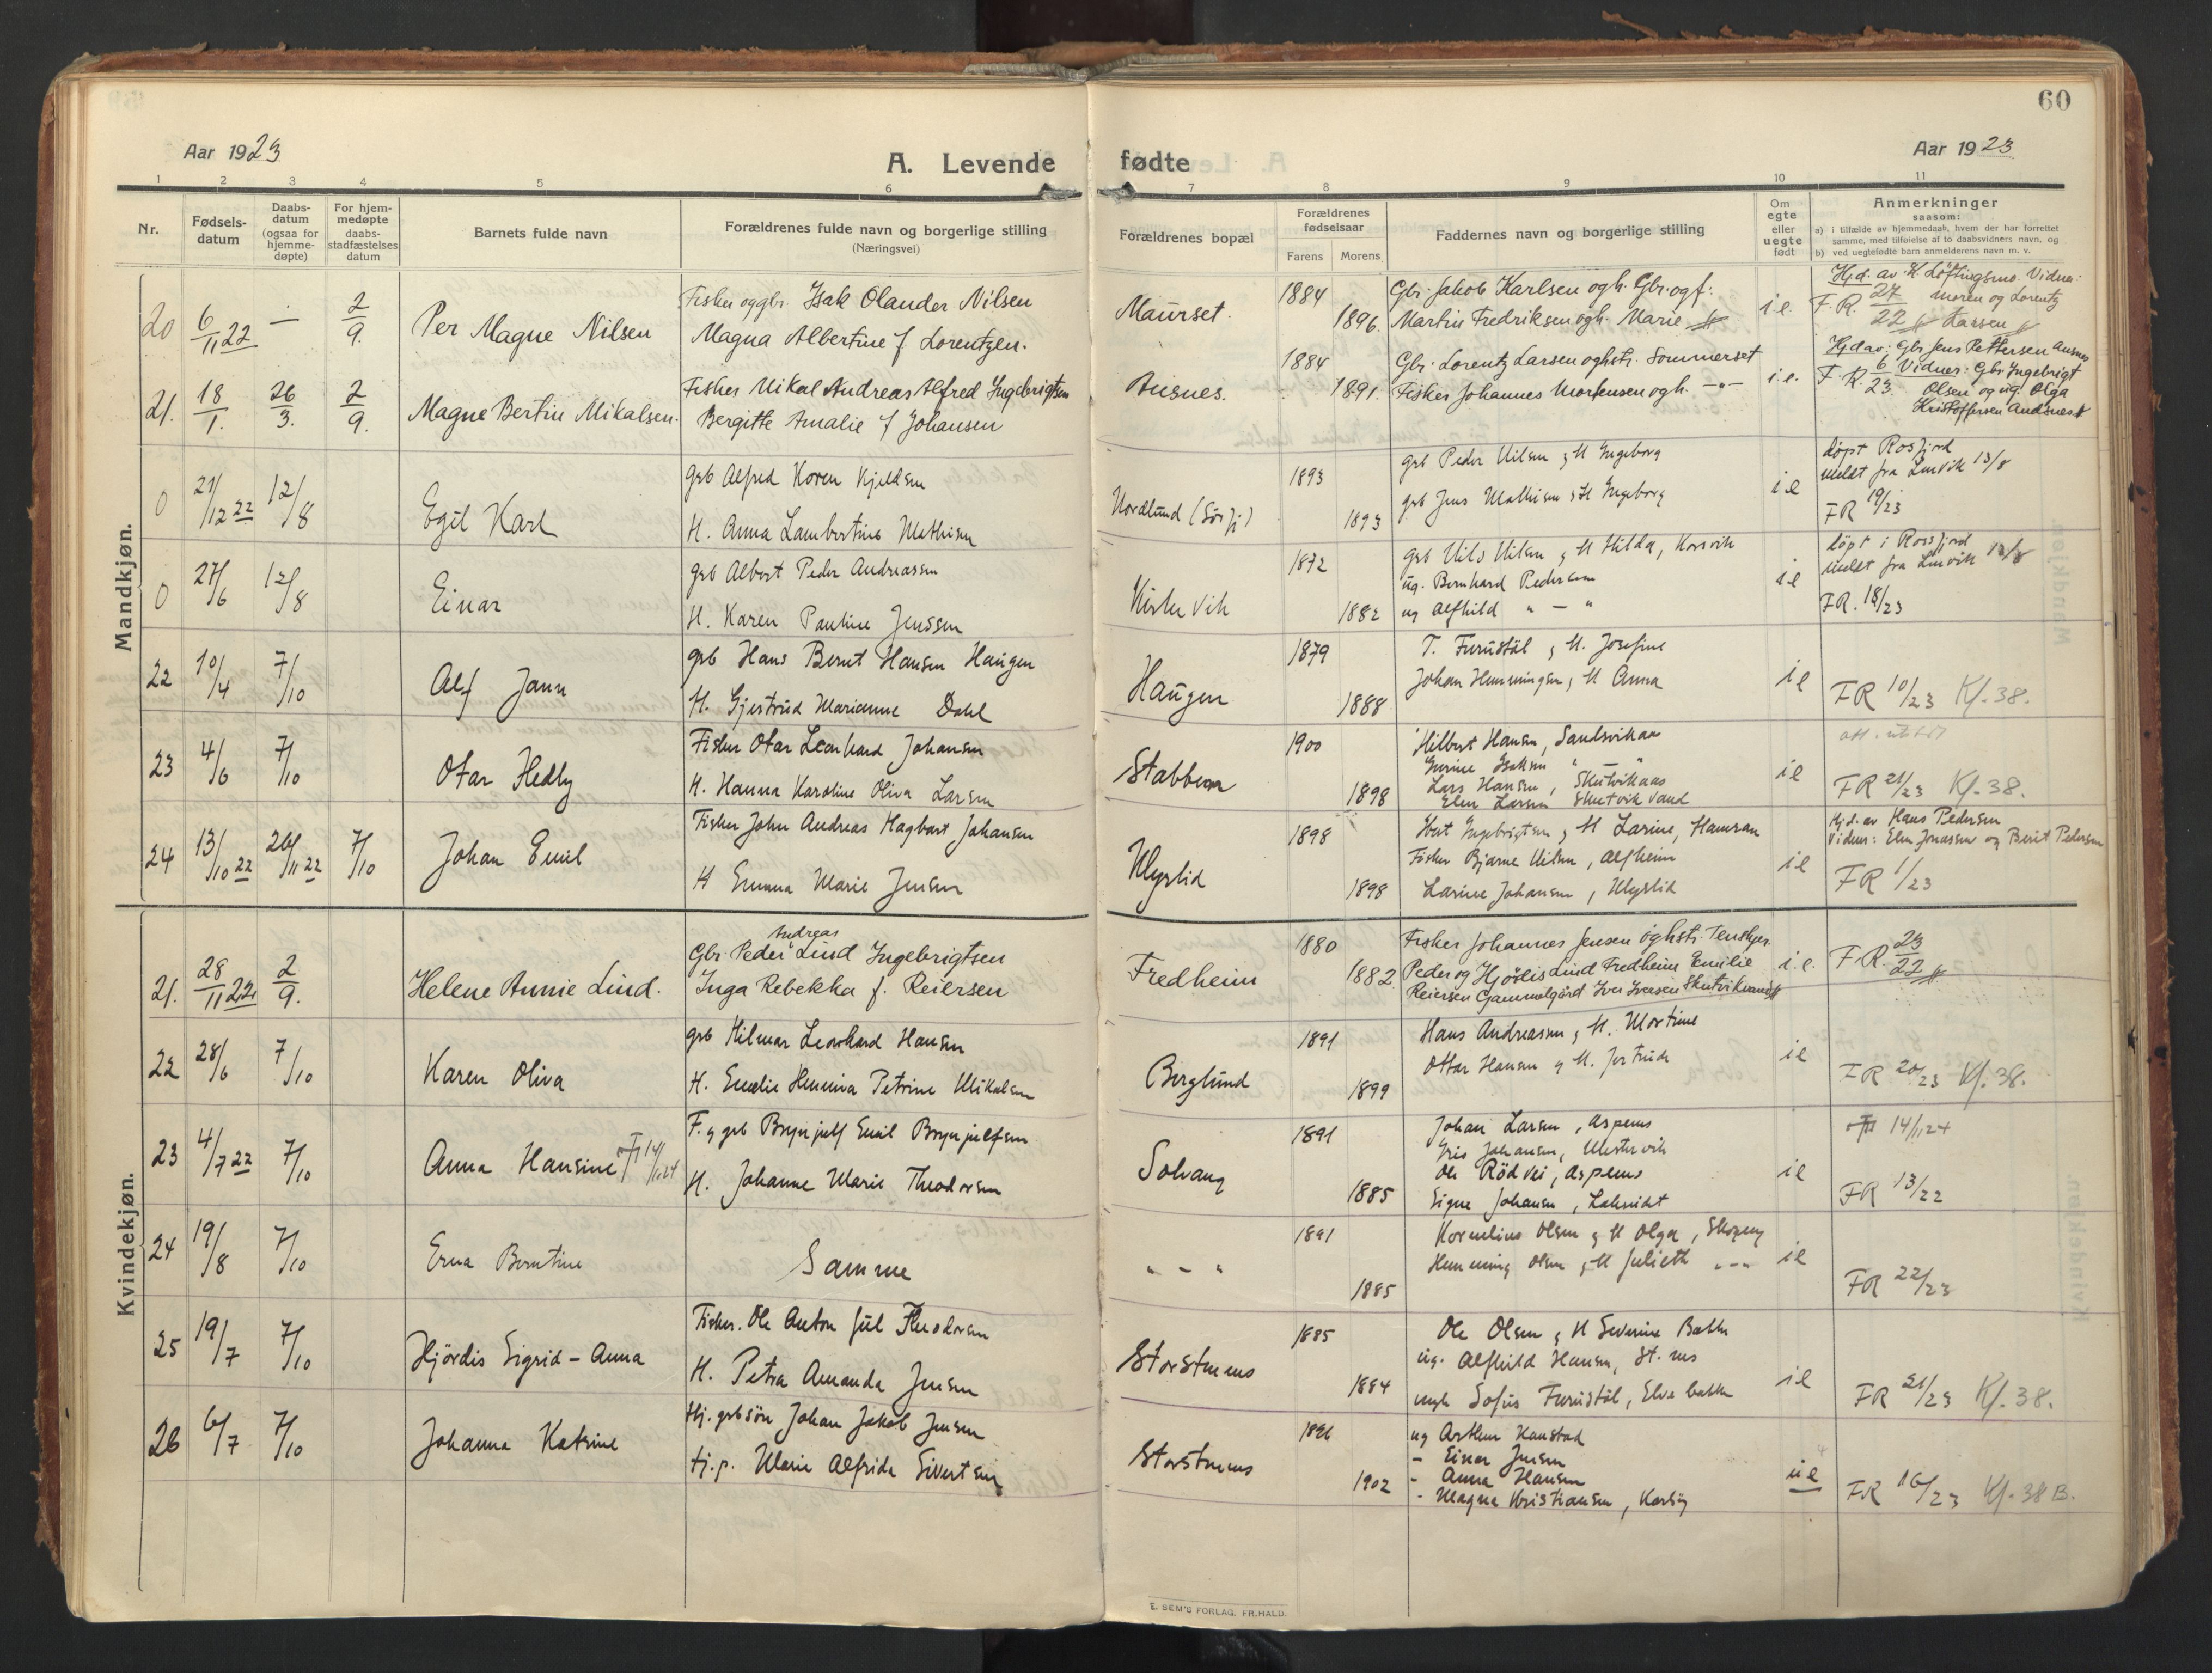 60
Aar 1923
A. Levende fødte
Aar 1923
1 2 3 4 5 6 7 8 9 10 11
Nr.
Fødsels-
datum
Daabs-
datum
(ogsaa for
hjemme-
døpte)
For hjem-
medøpte
daabs-
stadfæstelses
datum
Barnets fulde navn
Forældrenes fulde navn og borgerlige stilling
(Næringsvei)
Forældrenes bopæl
Forældrenes
fødselsaar
Farens Morens
Faddernes navn og borgerlige stilling
Om
egte
eller
uegte
født
Anmerkninger
saasom:
a) i tilfælde av hjemmedaab, hvem der har forrettet
samme, med tilføielse af to daabsvidners navn, og
b) ved uegtefødte barn anmelderens navn m. v.
Mandkjøn.
20 6/11 22 — 2/9. Per Magne Nilsen
Fisker og gbr. Isak Olander Nilsen
Magna Albertine f. Lorentzen.
Maurset. 1884 1896.
Gbr. Jakob Karlsen og h. Gbr. og f.
Martin Fredriksen og h. Marie
i.e.
Hj.d. av H. Löftingsmo. Vidner:
F.R. 27/22 moren og Lorentz
Larsen
21. 18/1. 26/3. 2/9. Magne Bertin Mikalsen.
Fisker Mikal Andreas Alfred Ingebrigtsen
Bergitte Amalie f. Johansen
Ausnes. 1884 1891.
Gbr. Lorentz Larsen og hstr. Sommerset
Fisker Johannes Mortensen og h. -"-
i.e.
Hj.d av: Gbr Jens Pettersen Ausnes
F.R. 6/23. Vidner: Gbr. Ingebrigt
Olsen og ug. Olga
Kristoffersen Andsnes
0 21/12 22 12/8 Egil Karl
grb Alfred Koren Kjeldsen
H. Anna Lambertine Mathisen
Nordlund (Sörfj) 1893 1893
grb Peder Nilsen & H Ingeborg
grb Jens Mathisen & H Ingeborg
i.e
döpt Rosfjord
meldt fra Lenvik 13/8
FR 19/23
0 27/6 12/8 Einar
grb Albert Peder Andreassen
H. Karen Pauline Jenssen
1872 1882
grb Nils Nilsen & H Hilda, Korsvik
ug. Bernhard Pedersen
ug Alfhild " — "
i e
döpt i Rossfjord
meldt fra Lenvik 13/8
FR. 18/23
22 10/4 7/10 Alf Jann
grb Hans Bernt Hansen Haugen
H. Gjertrud Marianne Dahl
Haugen 1879 1888
T. Furustöl & H. Josefine
Johan Henningsen & H Anna
i e
FR 10/23 Kf. 38.
23 4/6 7/10 Otar Hedly
Fisker Otar Leonhard Johansen
H. Hanna Karoline Oliva Larsen
Stabben 1900 1898
Hilbert Hansen, Sandsvikaas
Isaksen " — "
Lars Hansen, Skutvikaas
Elen Larsen Skutvik vand
i e
FR 21/23 Kf. 38.
24 13/10 22 26/11 22 7/10 Johan Emil
Fisker John Andreas Hagbart Johansen
H Emma Marie Jensen
Myrlid 1898 1898
Ingebrigtsen & H Larine, Hamran
Fisker Bjarne Nilsen, Alfheim
Larine Johansen, Myrlid
i e
Hj.d. av Hans Pedersen
Vidner: Elen Jonassen og Berit Pedersen
FR 1/23
Kvindekjøn.
21. 28/11 22 2/9. Helene Annie Lind.
Andreas
Gbr. Peder Lind Ingebrigtsen
Inga Rebekka f. Reiersen
Fredheim 1880 1882.
Fisker Johannes Jensen og hstr. Tenskjer
Peder og Hjördis Lind Fredheim Emilie
Reiersen Gammelgård Iver Iversen Skutvikvand
i.e.
F.R. 23/22
22 28/6 7/10 Karen Oliva
grb Hilmar Leonhard Hansen
H. Emelie Hennina Petrine Mikalsen
Berglund 1891 1899
Hans Andreasen & H. Mortine
Ottar Hansen & H. Jertrude
i e
FR 20/23 Kf. 38.
23 4/7 22 7/10 Anna Hansine † 14/11 24
F. & grb Brynjulf Emil Brynjulfsen
H. Johanne Marie Theodorsen
Solvang 1891 1885
Johan Larsen, Aspenes
Johansen, Mestervik
Ole Rödvei, Aspenes
Signe Johansen, Laksvidt
i e
† 14/11 24
FR 13/22
24 19/8 7/10 Erna Berntine
Samme
" - " 1891 1885
Kornelius Olsen & H Olga, Skogeng
Henning Olsen & H Julieth " - "
i e
FR 22/23
25 19/7 7/10 Hjördis Sigrid - Anna
Fisker. Ole Anton Jul Theodorsen
H. Petra Amanda Jensen
Storstennes 1885 1884
Ole Olsen & H Severine Bakke
ug. Alfhild Hansen, St. nes
ungk Sofus Furustöl, Elvebakke
i e
FR 21/23 Kf. 38.
26 6/7 7/10 Johanna Katrine
Hj. grbsön Johan Jakob Jensen
tj. p. Marie Alfrida Sivertsen
Storstennes 1896 1902
ug Arthur Kanstad
- Einar Jensen
- Anna Hansen
- Magna Kristiansen, Karlöy
u e
FR 16/23 Kf. 38 B.
E. SEM'S FORLAG. FR.HALD.